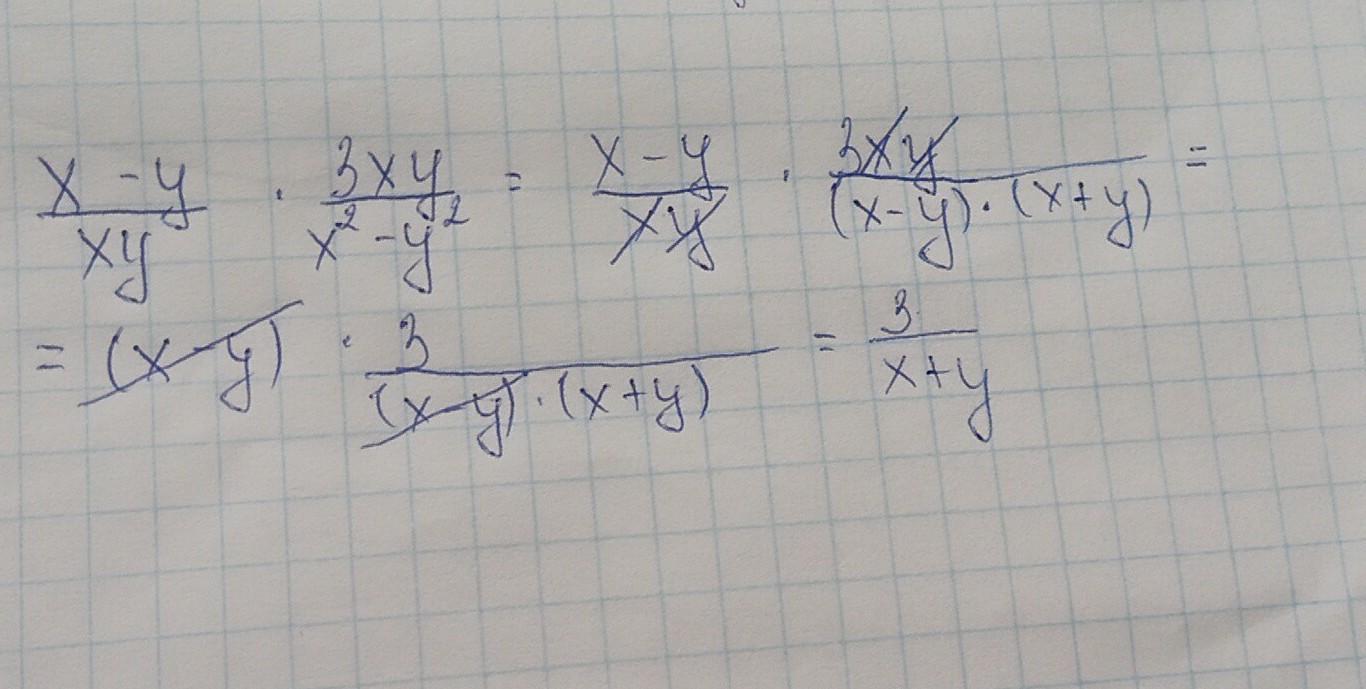 x - y / xy · 3xy / x² - y² = x - y / xy · 3xy / (x - y) · (x + y) =
= (x - y) · 3 / (x - y) · (x + y) = 3 / x + y